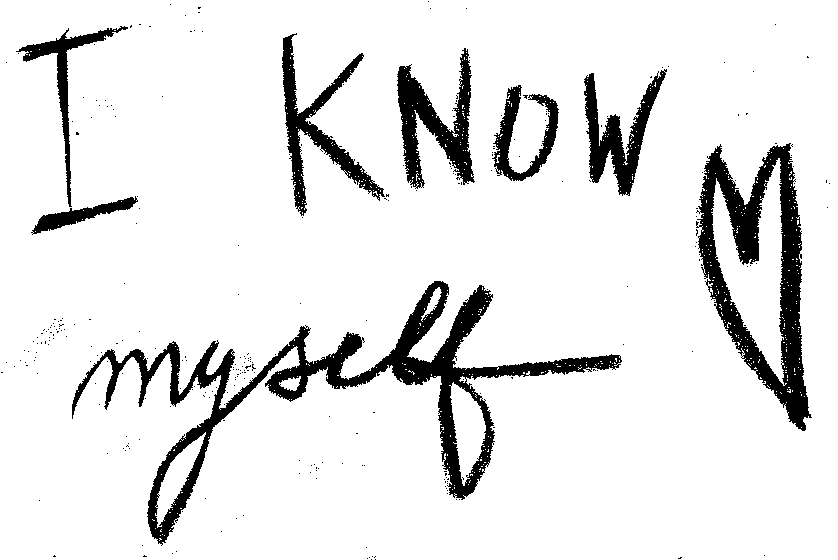 I KNOW
myself